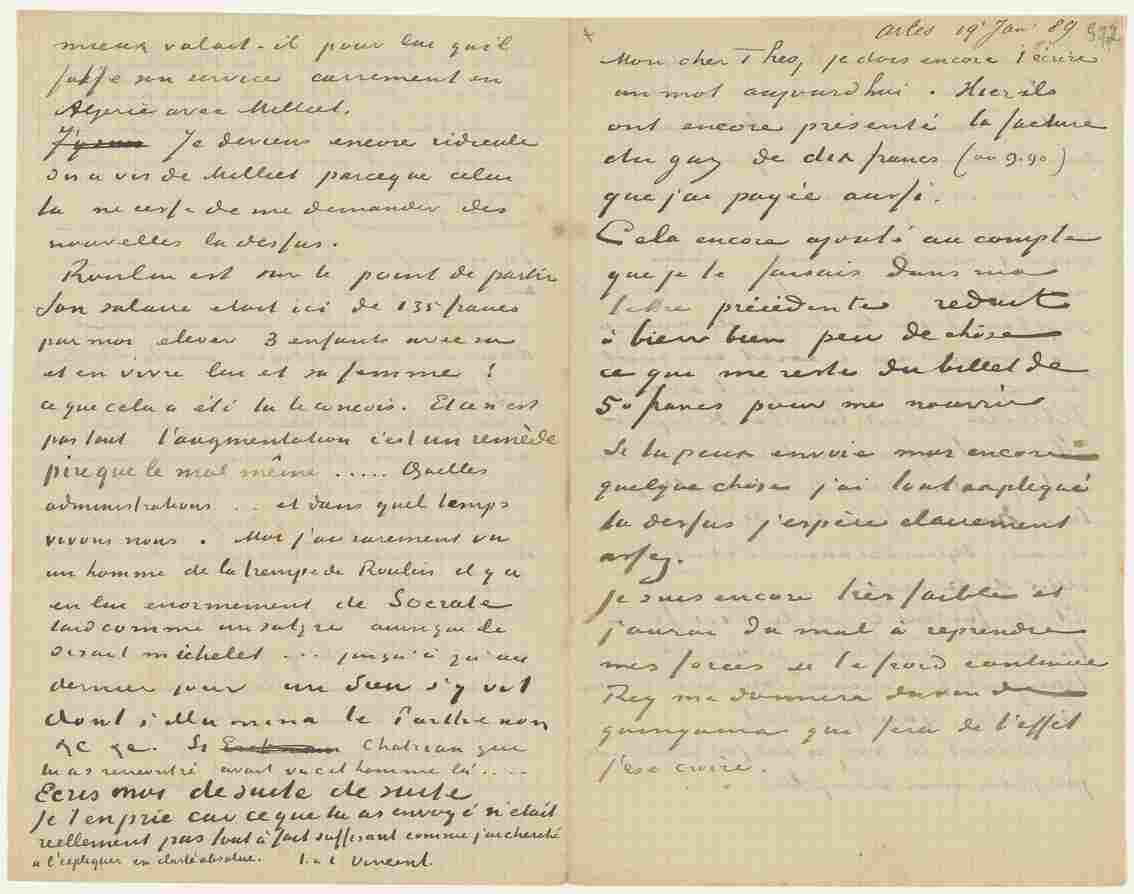 mieux valait-il pour lui qu'il
fasse son service carrement en
Algerie avec Milliet.
Je deviens encore ridicule
vis a vis de Milliet parceque celui
la ne cesse de me demander des
nouvelles la dessus.
Roulin est sur le point de partir
Son salaire etait ici de 135 francs
par mois elever 3 enfants avec ca
et en vivre lui et sa femme !
ce que cela a été tu le concois. Et ce n'est
pas tout l'augmentation c'est un remède
pire que le mal même ..... Quelles
administrations .. et dans quel temps
vivons nous. Moi j'ai rarement vu
un homme de la trempe de Roulin il y a
en lui enormement de Socrate
laid comme un satyre ainsi que le
disait Michelet ... jusqu'à qu'au
dernier jour un Dieu s'y vit
dont s'illumina le Parthenon
&c &c. Si Chatrian que
tu as rencontré avait vu cet homme là .....
Ecris moi de suite de suite
Je t'en prie car ce que tu as envoyé n'était
reellement pas tout à fait suffisant comme j'ai cherché
a l'expliquer en clarté absolue. t. a t Vincent.
Arles 19 Jan 89
Mon cher Theo, je dois encore t'écrire
un mot aujourd'hui. Hier ils
ont encore présenté la facture
du gaz de dix francs (ou 9.90)
que j'ai payée aussi.
Cela encore ajouté au compte
que je te faisais dans ma
lettre précédente reduit
à bien bien peu de chôse
ce que me reste du billet de
50 francs pour me nourrir
Si tu peux envoie moi encore
quelque chôse j'ai tout expliqué
la dessus j'espère clairement
assez.
Je suis encore très faible et
j'aurai du mal à reprendre
mes forces si le froid continue
Rey me donnera du vin de
quinquina qui fera de l'effet
j'ose croire.